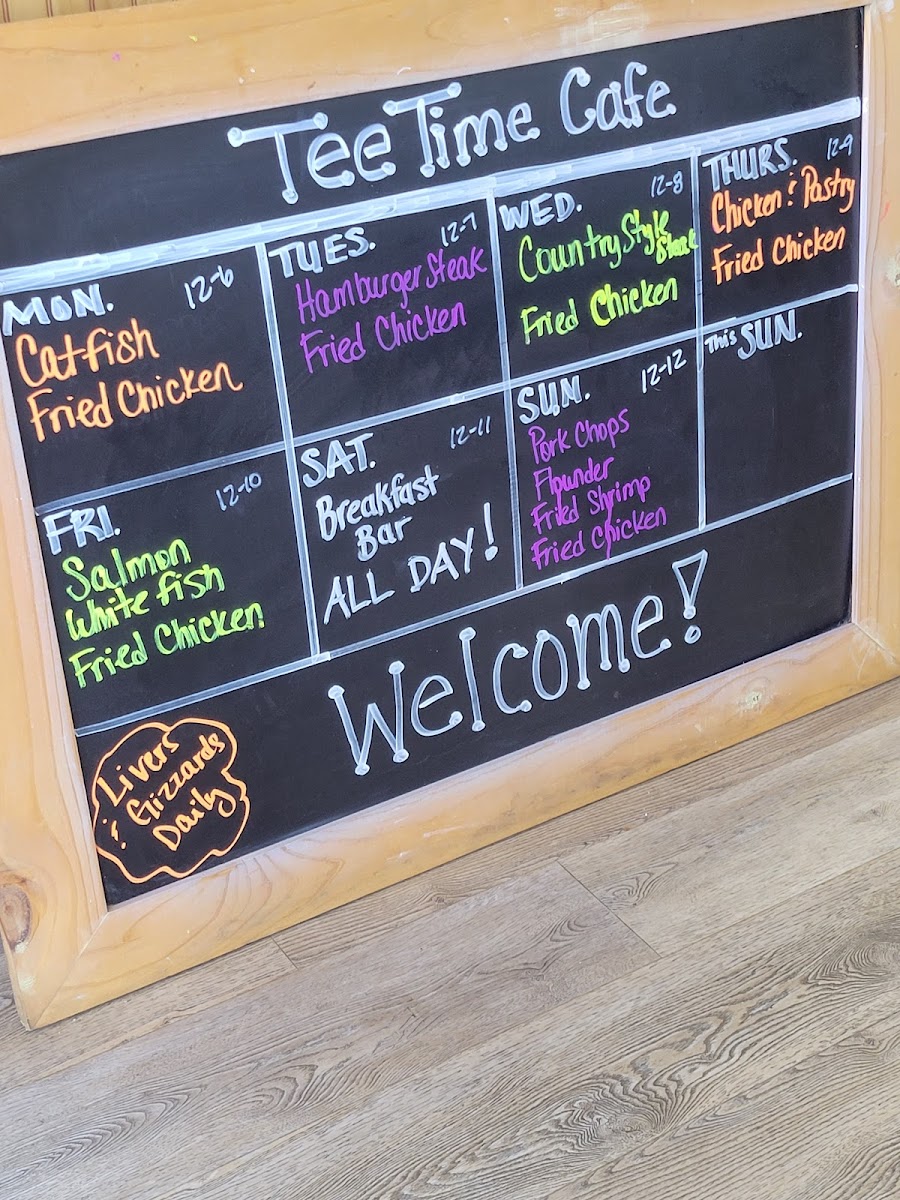 TeeTime Cafe
MON. 12-6
Catfish
Fried Chicken
TUES. 12-7
Hamburger Steak
Fried Chicken
WED. 12-8
Country Style
Steak
Fried Chicken
THURS. 12-9
Chicken & Pastry
Fried Chicken
FRI. 12-10
Salmon
White fish
Fried Chicken
SAT. 12-11
Breakfast
Bar
ALL DAY!
SUN. 12-12
Pork Chops
Flounder
Fried Shrimp
Fried Chicken
This SUN.
Welcome!
Livers
& Gizzards
Daily